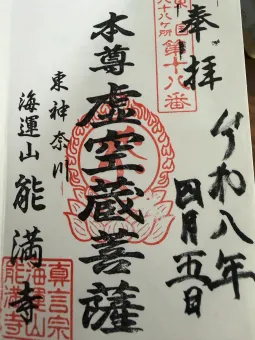 奉拝
令和八年
四月五日
八十八ケ所第十八番
本尊 虚空蔵菩薩
東神奈川
海運山 能満寺
真言宗
海運山
能満寺